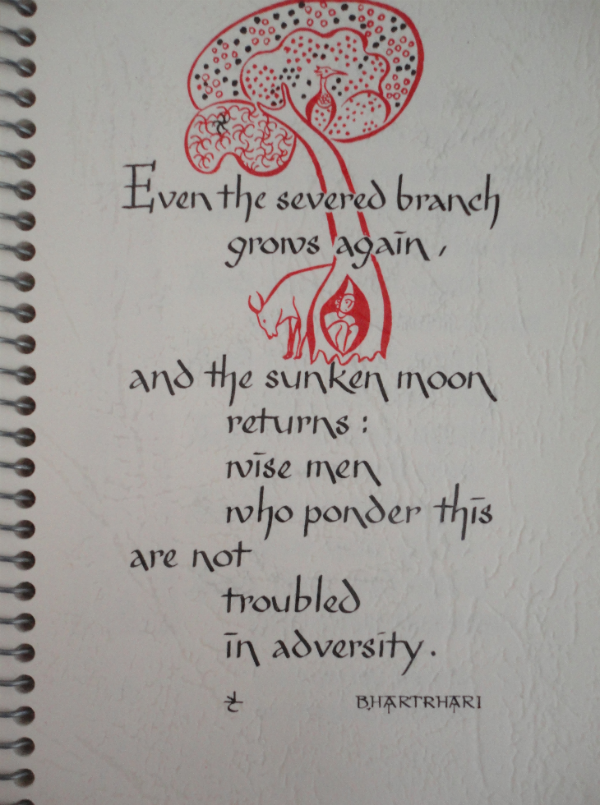 Even the severed branch
grows again,
and the sunken moon
returns:
wise men
who ponder this
are not
troubled
in adversity.
BHARTRHARI